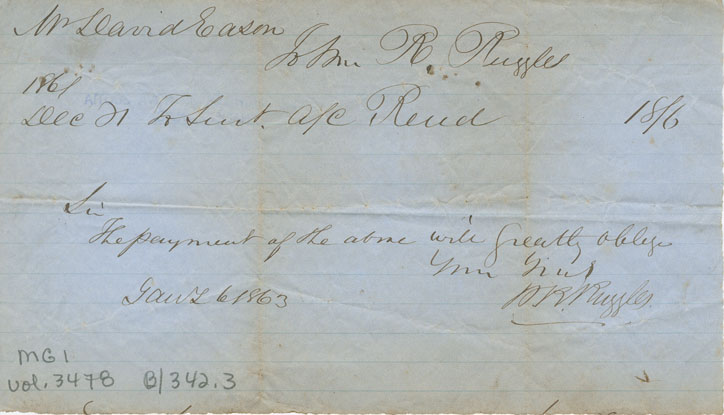 Mr David Eason
To Wm R. Ruggles
1861
Dec 31 To Sunt. A/C Rend 18/6
Sir
The payment of the above will greatly oblige
Your Truly
W. R. Ruggles
Jany 6 1863
MG1
vol. 3478 B/342.3